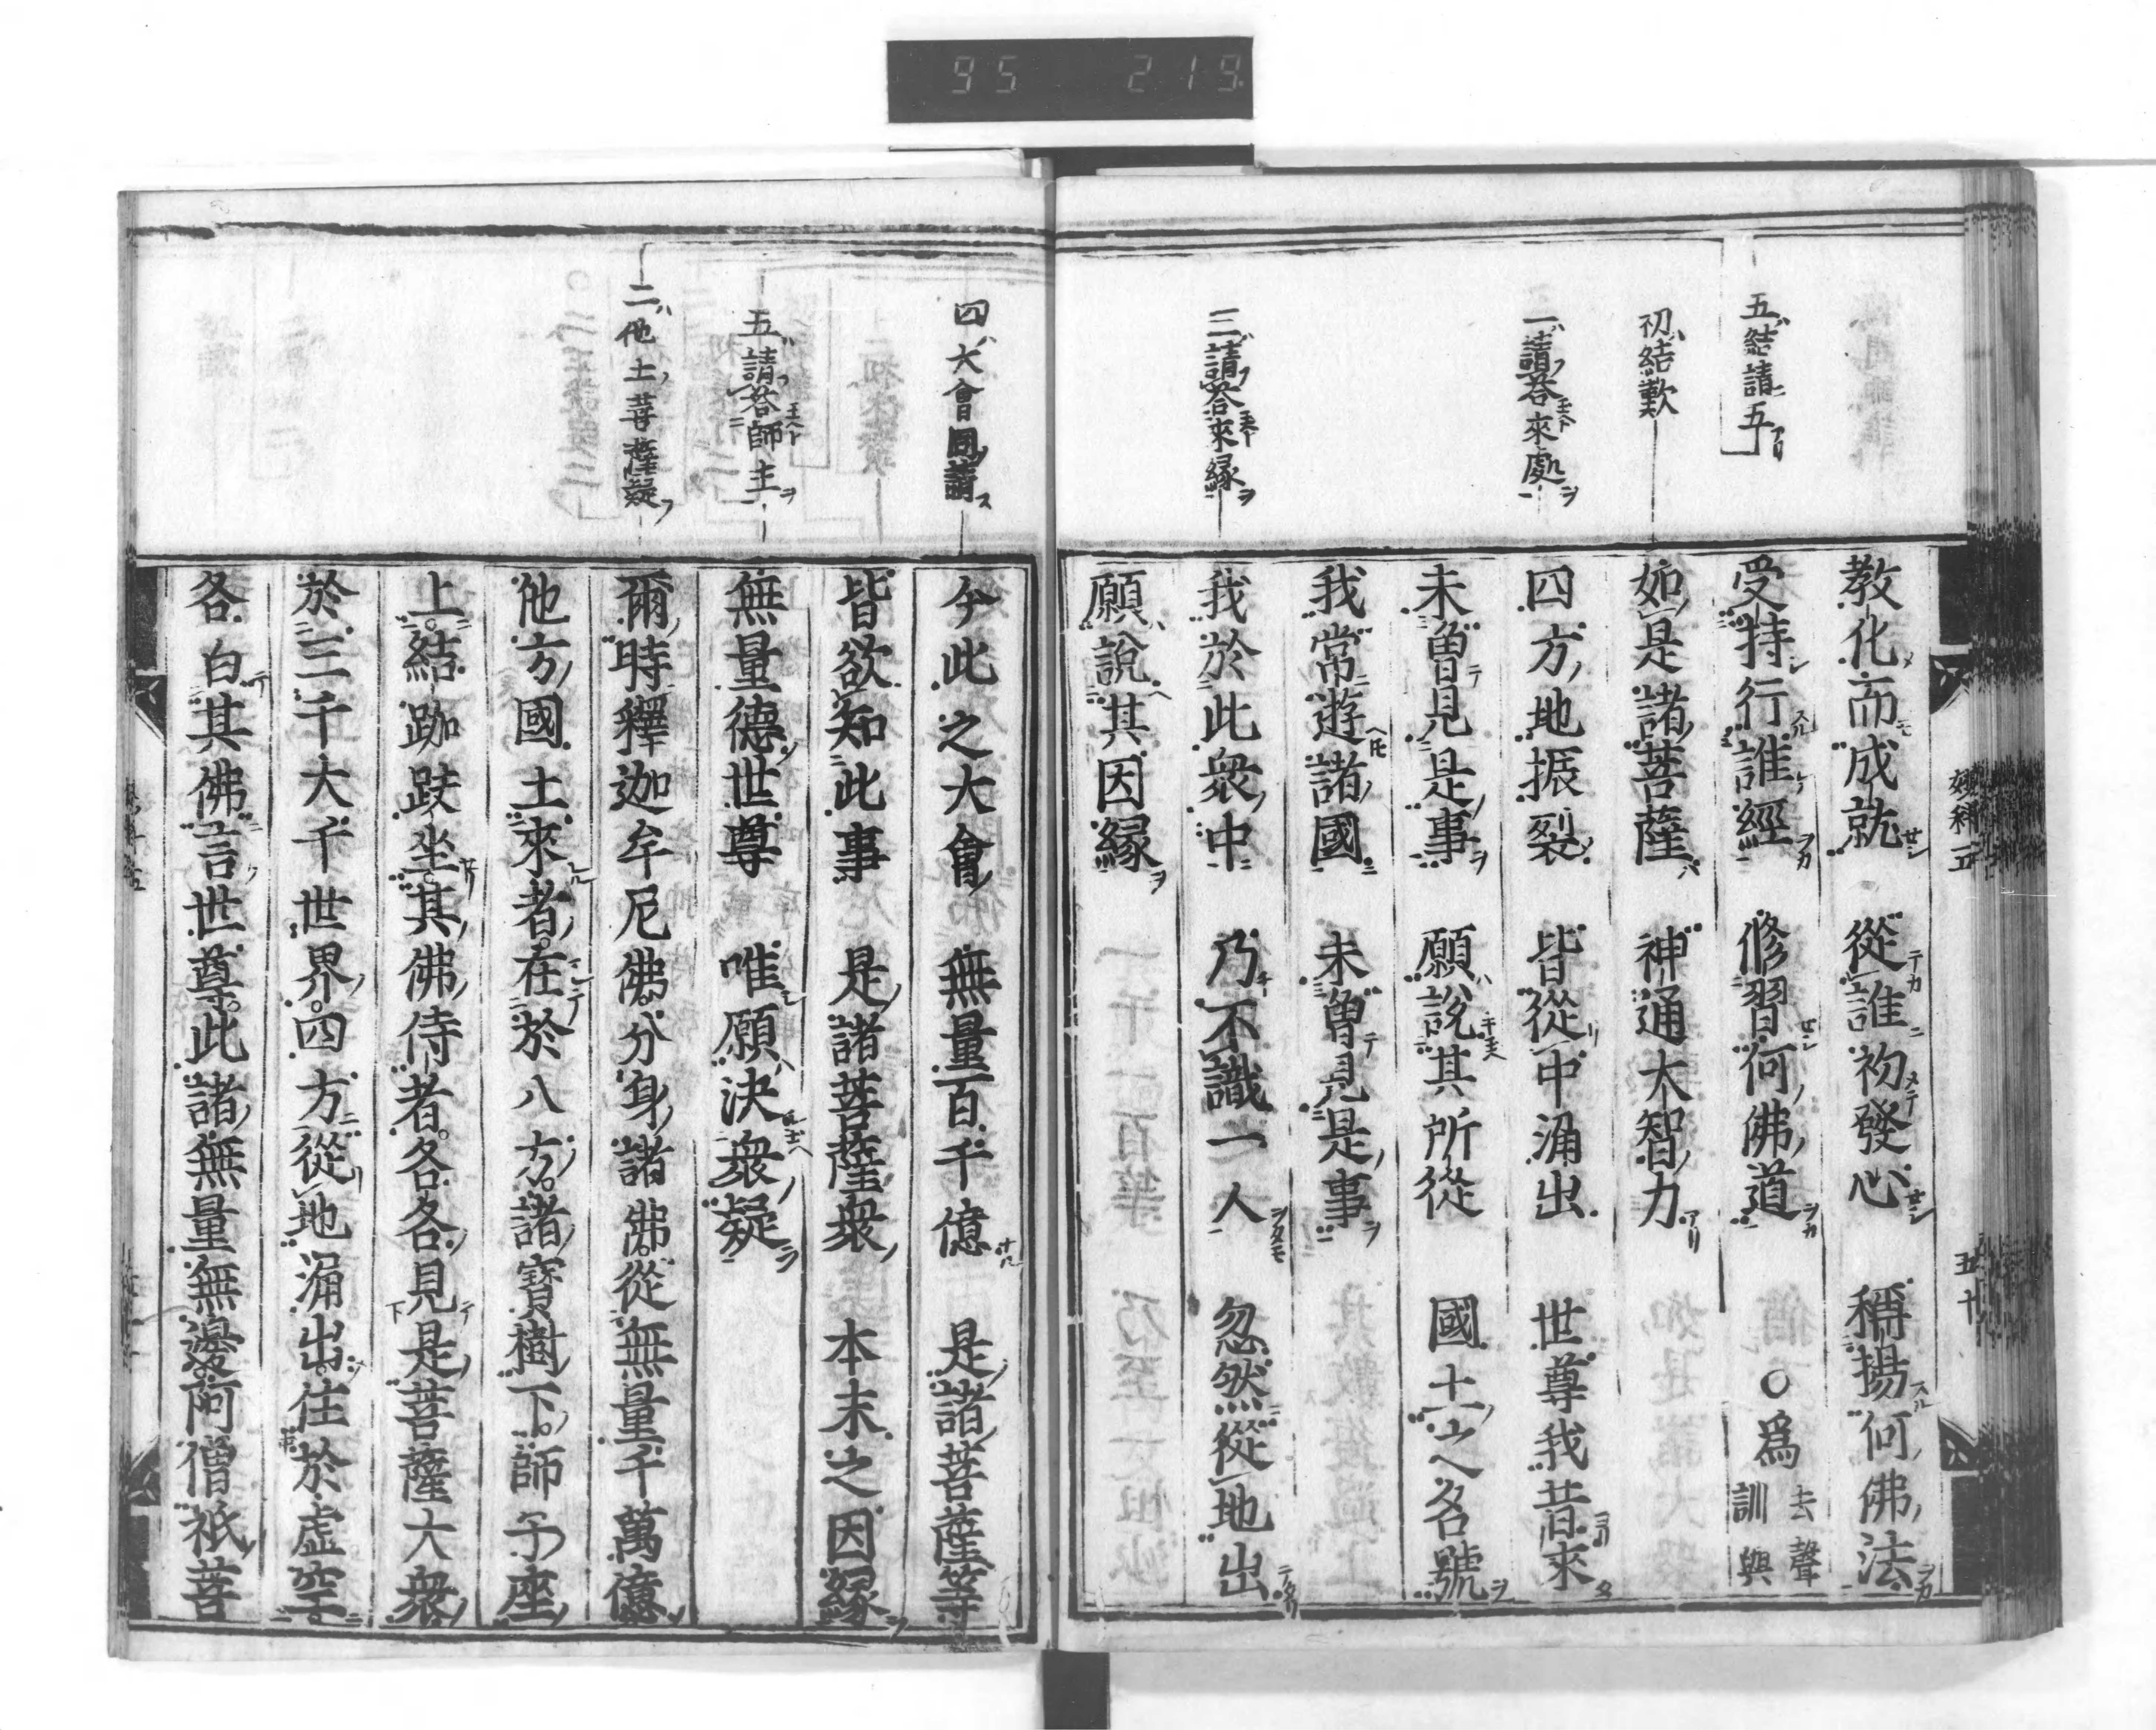 95 219
五結請五
初結歎
二請荅來處
三請荅來緣
教化而成就 從誰初發心 稱揚何佛法
受持行誰經 修習何佛道 ○爲去聲訓與
如是諸菩薩 神通大智力
四方地振裂 皆從中涌出 世尊我昔來
未曾見是事 願說其所從 國土之名號
我常遊諸國 未曾見是事
我於此衆中 乃不識一人 忽然從地出
願說其因緣
四大會同請
五請荅師主
二他土菩薩疑
今此之大會 無量百千億 是諸菩薩等
皆欲知此事 是諸菩薩衆 本末之因緣
無量德世尊 唯願決衆疑
爾時釋迦牟尼佛分身諸佛從無量千萬億
他方國土來者在於八方諸寶樹下師子座
上結跏趺坐其佛侍者各各見是菩薩大衆
於三千大千世界四方從地涌出住於虛空
各白其佛言世尊此諸無量無邊阿僧祇菩